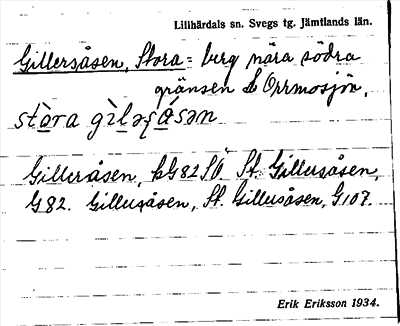 Lillhärdals sn. Svegs tg. Jämtlands län.
Gillersåsen, Stora = berg nära södra
gränsen å Orrmosjön,
Gilleråsen, kG82SÖ. St. Gillersåsen,
G82. Gillersåsen, St. Gillersåsen, G107.
Erik Eriksson 1934.